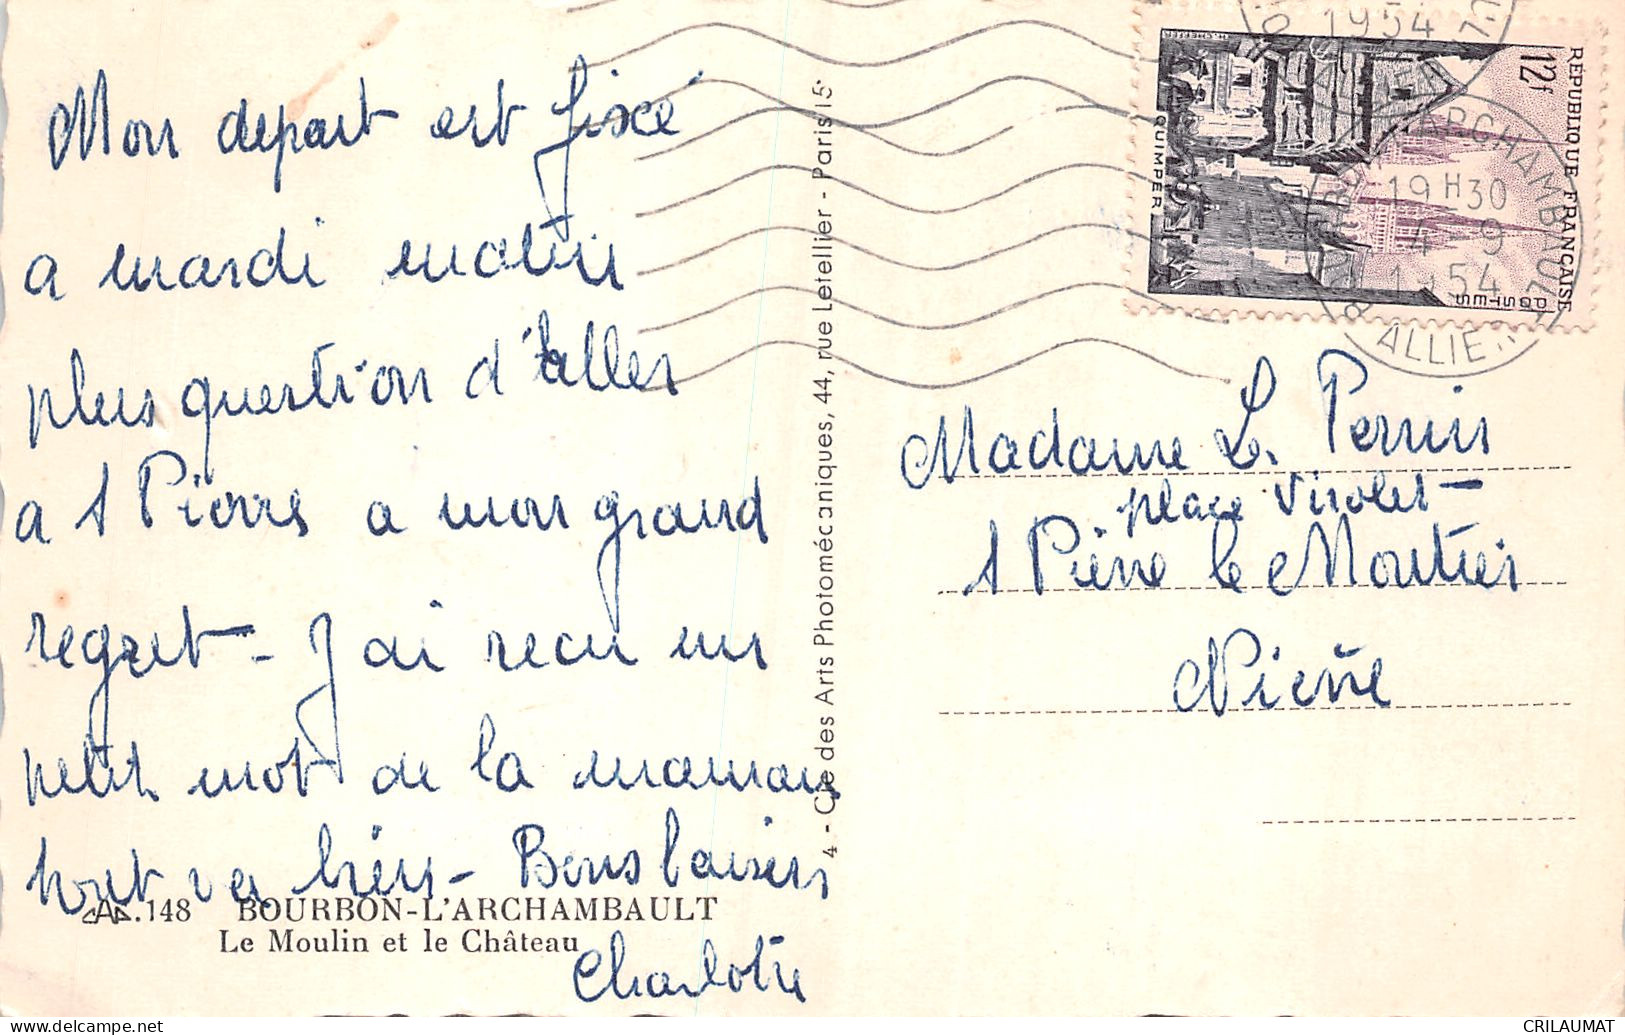 Mon depart est fixé
a mardi matin
plus question d'aller
a S Pierre a mon grand
regret - J'ai recu un
petit mot de la maman
tout va bien - Bons baisers
Charlotte
CAP. 148 BOURBON-L'ARCHAMBAULT
Le Moulin et le Château
4 - Cie des Arts Photomécaniques, 44, rue Letellier - Paris 15e
RÉPUBLIQUE FRANÇAISE
12f
POSTES
QUIMPER
H. CHEFFER
1954
BOURBON L'ARCHAMBAULT
19H30
4 9
1954
ALLIER
Madame L. Perrin
place Virolet
S Pierre le Moutier
Nièvre
CRILAUMAT